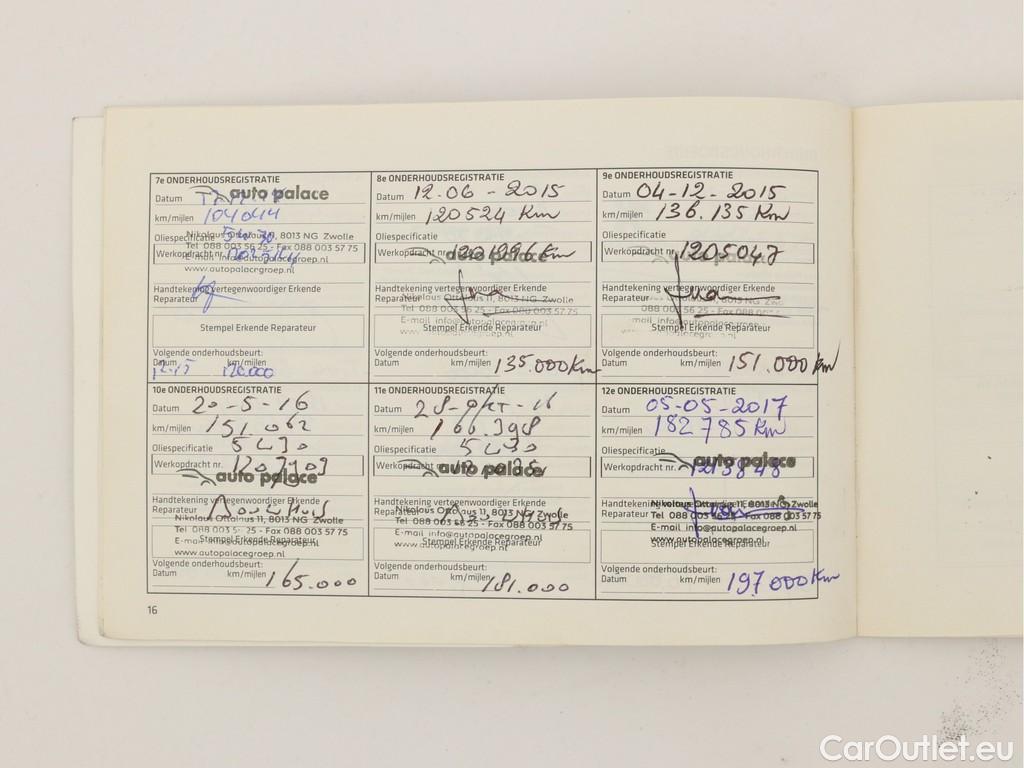 7e ONDERHOUDSREGISTRATIE
Datum
auto palace
km/mijlen 104044
Oliespecificatie 5W30
Nikolaus Ottolaus 11, 8013 NG Zwolle
Tel 088 003 56 25 - Fax 088 003 57 75
Werkopdracht nr.
E-mail info@autopalacegroep.nl
www.autopalacegroep.nl
Handtekening vertegenwoordiger Erkende
Reparateur
Stempel Erkende Reparateur
Volgende onderhoudsbeurt:
Datum km/mijlen
120.000
8e ONDERHOUDSREGISTRATIE
Datum 12-06-2015
km/mijlen 120524 Km
Oliespecificatie
Werkopdracht nr.
auto palace
Handtekening vertegenwoordiger Erkende
Reparateur
Nikolaus Ottolaus 11, 8013 NG Zwolle
Tel 088 003 56 25 - Fax 088 003 57 75
E-mail info@autopalacegroep.nl
Stempel Erkende Reparateur
Volgende onderhoudsbeurt:
Datum km/mijlen 135.000 Km
9e ONDERHOUDSREGISTRATIE
Datum 04-12-2015
km/mijlen 136.135 Km
Oliespecificatie
Werkopdracht nr. 1205047
Handtekening vertegenwoordiger Erkende
Reparateur
Stempel Erkende Reparateur
Volgende onderhoudsbeurt:
Datum km/mijlen 151.000 Km
10e ONDERHOUDSREGISTRATIE
Datum 20-5-16
km/mijlen 151062
Oliespecificatie 5W30
Werkopdracht nr.
auto palace
Handtekening vertegenwoordiger Erkende
Reparateur
Nikolaus Ottolaus 11, 8013 NG Zwolle
Tel 088 003 56 25 - Fax 088 003 57 75
E-mail info@autopalacegroep.nl
Stempel Erkende Reparateur
www.autopalacegroep.nl
Volgende onderhoudsbeurt:
Datum km/mijlen 165.000
11e ONDERHOUDSREGISTRATIE
Datum 28-okt-16
km/mijlen 166.398
Oliespecificatie 5W30
Werkopdracht nr.
auto palace
Handtekening vertegenwoordiger Erkende
Reparateur
Nikolaus Ottolaus 11, 8013 NG Zwolle
Tel 088 003 56 25 - Fax 088 003 57 75
E-mail info@autopalacegroep.nl
Stempel Erkende Reparateur
www.autopalacegroep.nl
Volgende onderhoudsbeurt:
Datum km/mijlen 181.000
12e ONDERHOUDSREGISTRATIE
Datum 05-05-2017
km/mijlen 182785 Km
Oliespecificatie
auto palace
Werkopdracht nr. 1213848
Handtekening vertegenwoordiger Erkende
Nikolaus Ottolaus 11, 8013 NG Zwolle
Reparateur
Tel 088 003 56 25 - Fax 088 003 57 75
E-mail info@autopalacegroep.nl
www.autopalacegroep.nl
Stempel Erkende Reparateur
Volgende onderhoudsbeurt:
Datum km/mijlen 197.000 Km
16
CarOutlet.eu